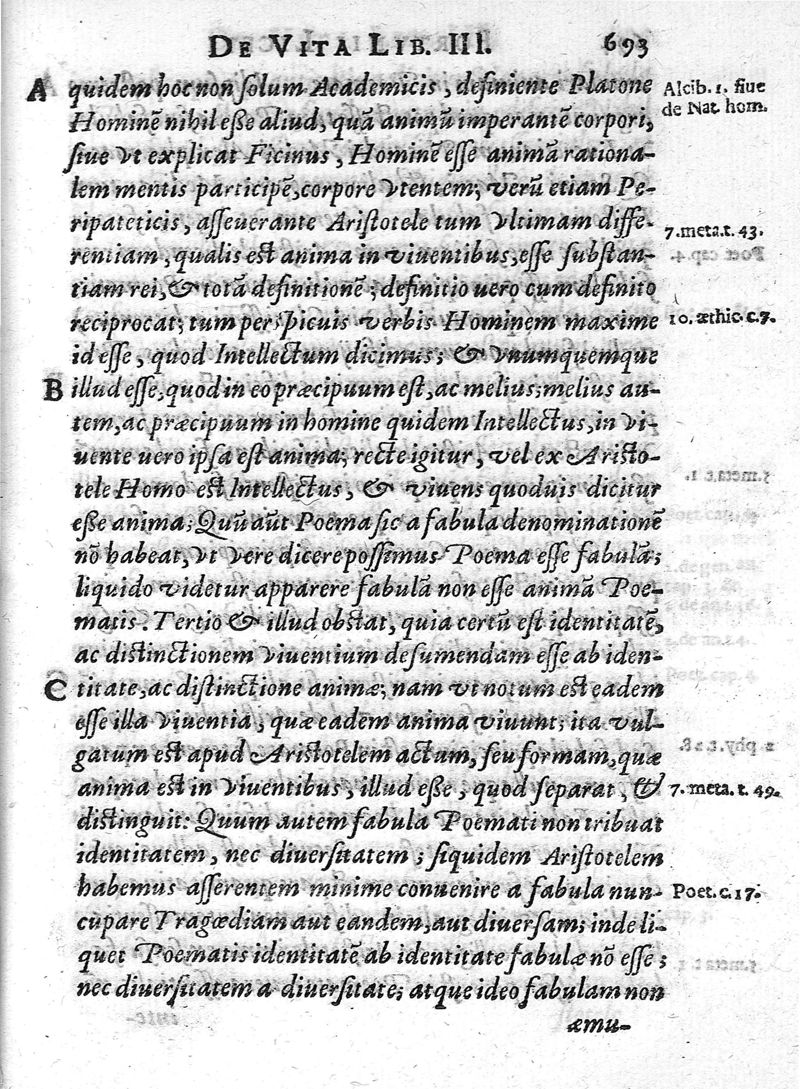 DE VITA LIB. III. 693
A quidem hoc non ſolum Academicis, definiente Platone
Alcib. 1. ſiue
Hominē nihil eſſe aliud, quā animū imperantē corpori,
de Nat. hom.
ſiue vt explicat Ficinus, Hominē eſſe animā rationa-
lem mentis participē, corpore vtentem; verū etiam Pe-
ripateticis, aſſeuerante Ariſtotele tum vltimam diffe-
7. meta. t. 43.
rentiam, qualis eſt anima in viuentibus, eſſe ſubſtan-
tiam rei, & totā definitionē; definitio uero cum definito
reciprocat; tum perſpicuis verbis Hominem maxime
10. æthic. c. 7.
id eſſe, quod Intellectum dicimus; & vnumquemque
B illud eſſe, quod in eo præcipuum eſt, ac melius; melius au-
tem, ac præcipuum in homine quidem Intellectus, in vi-
uente uero ipſa eſt anima; recte igitur, vel ex Ariſto-
tele Homo eſt Intellectus, & viuens quoduis dicitur
eſſe anima; Quū aūt Poema ſic a fabula denominationē
nō habeat, vt vere dicere poſſimus Poema eſſe fabulā;
liquido videtur apparere fabulā non eſſe animā Poe-
matis. Tertio & illud obſtat, quia certū eſt identitatē,
ac diſtinctionem viuentium deſumendam eſſe ab iden-
C titate, ac diſtinctione animæ; nam vt notum eſt eadem
eſſe illa viuentia, quæ eadem anima viuunt; ita vul-
gatum eſt apud Ariſtotelem actum, ſeu formam, quæ
anima eſt in viuentibus, illud eſſe, quod ſeparat, &
7. meta. t. 49.
diſtinguit: Quum autem fabula Poemati non tribuat
identitatem, nec diuerſitatem; ſiquidem Ariſtotelem
habemus aſſerentem minime conuenire a fabula nun-
Poet. c. 17.
cupare Tragœdiam aut eandem, aut diuerſam; inde li-
quet Poematis identitatē ab identitate fabulæ nō eſſe;
nec diuerſitatem a diuerſitate; atque ideo fabulam non
æmu-